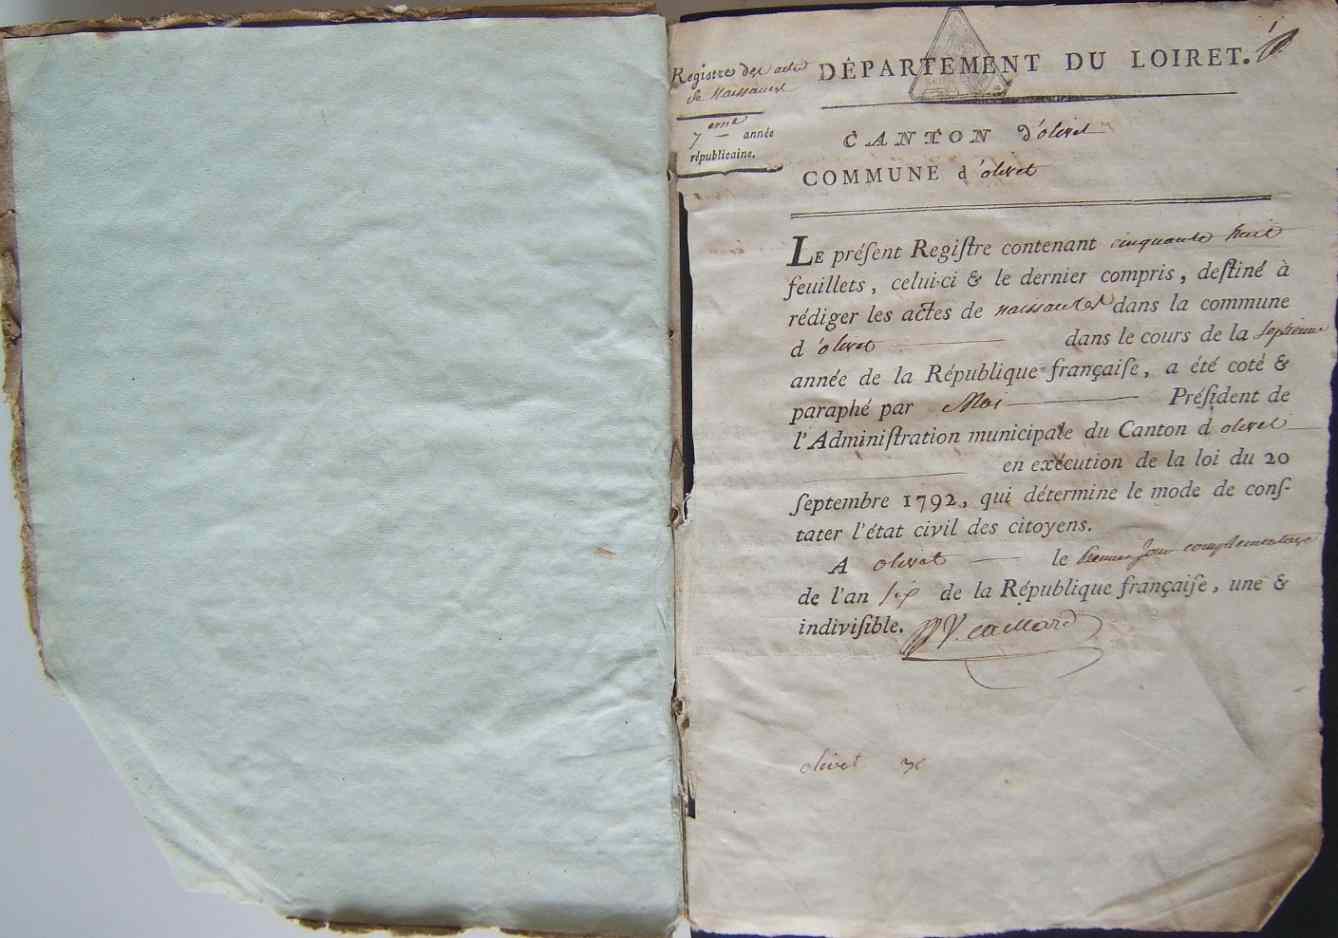 Registre des actes
de Naissances
7 eme année
républicaine.
1
DÉPARTEMENT DU LOIRET.
CANTON d'olivet
COMMUNE d'olivet
LE préſent Regiſtre contenant cinquante huit
feuillets, celui-ci & le dernier compris, deſtiné à
rédiger les actes de naissances dans la commune
d'olivet dans le cours de la septieme
année de la République françaiſe, a été coté &
paraphé par Moi Préſident de
l'Adminiſtration municipale du Canton d olivet
en exécution de la loi du 20
ſeptembre 1792, qui détermine le mode de conſ-
tater l'état civil des citoyens.
A olivet le jour complementaire
de l'an six de la République françaiſe, une &
indiviſible.
olivet 7e